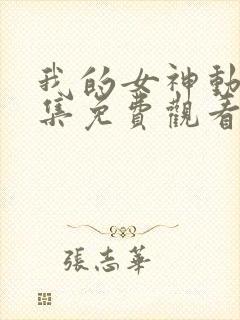 我的女神動
集免費觀看
張志華